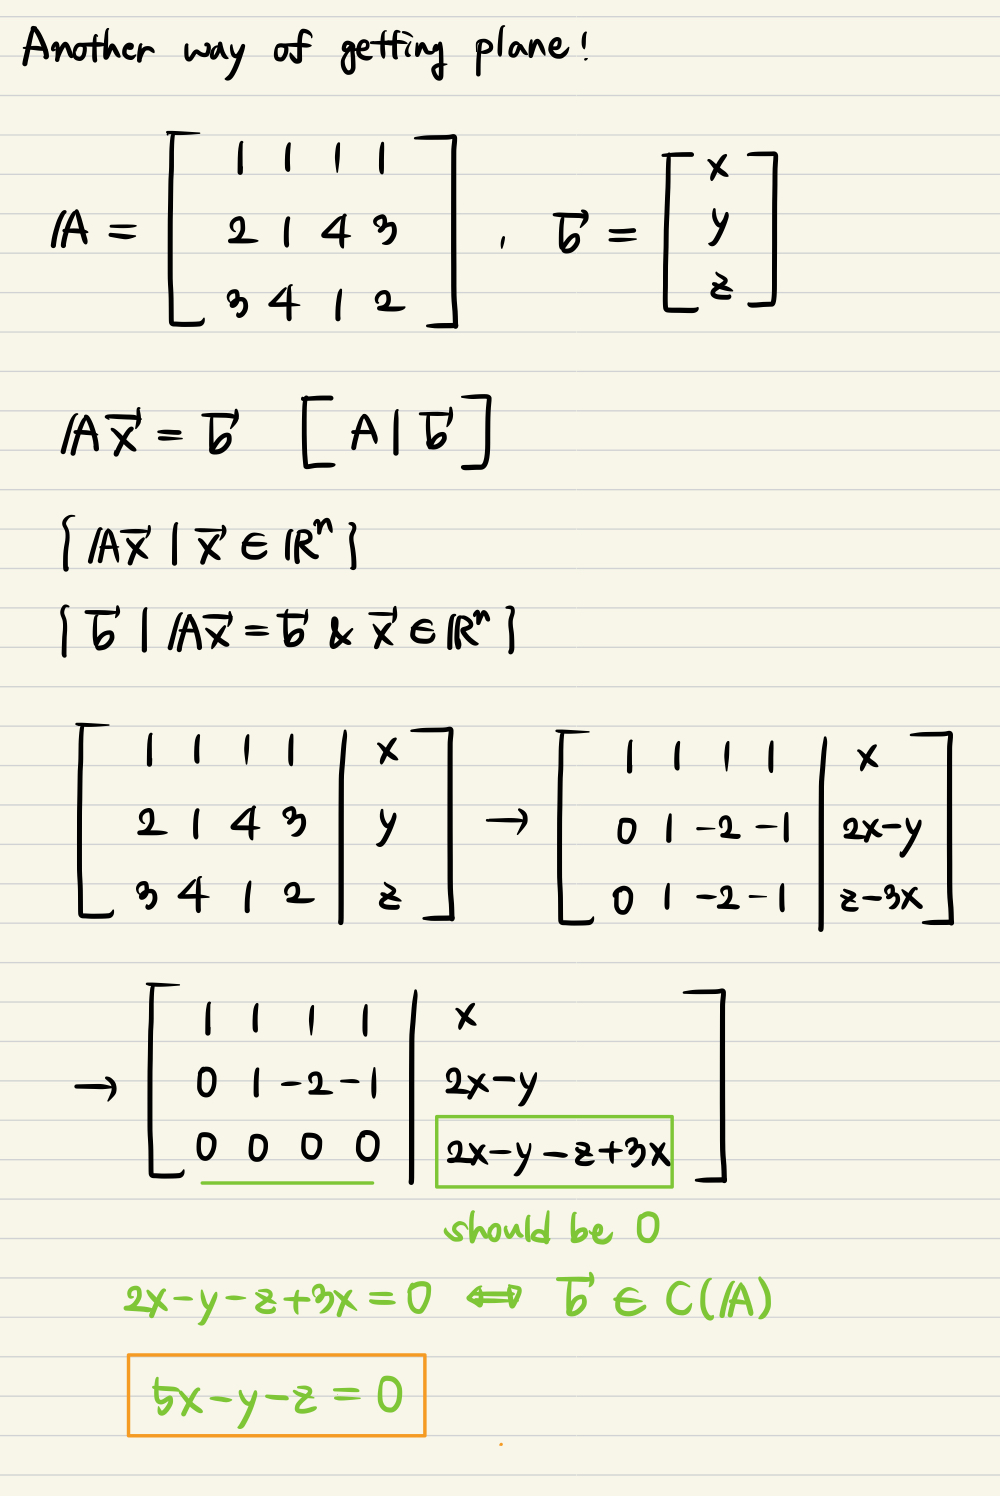 Another way of getting plane!
A = [ 1 1 1 1
2 1 4 3
3 4 1 2 ] , b⃗ = [ x
y
z ]
A x⃗ = b⃗ [ A | b⃗ ]
{ A x⃗ | x⃗ ∈ ℝⁿ }
{ b⃗ | A x⃗ = b⃗ & x⃗ ∈ ℝⁿ }
[ 1 1 1 1 | x
2 1 4 3 | y
3 4 1 2 | z ] → [ 1 1 1 1 | x
0 1 -2 -1 | 2x-y
0 1 -2 -1 | z-3x ]
→ [ 1 1 1 1 | x
0 1 -2 -1 | 2x-y
0 0 0 0 | 2x-y-z+3x ]
should be 0
2x-y-z+3x = 0 ⟺ b⃗ ∈ C(A)
5x-y-z = 0